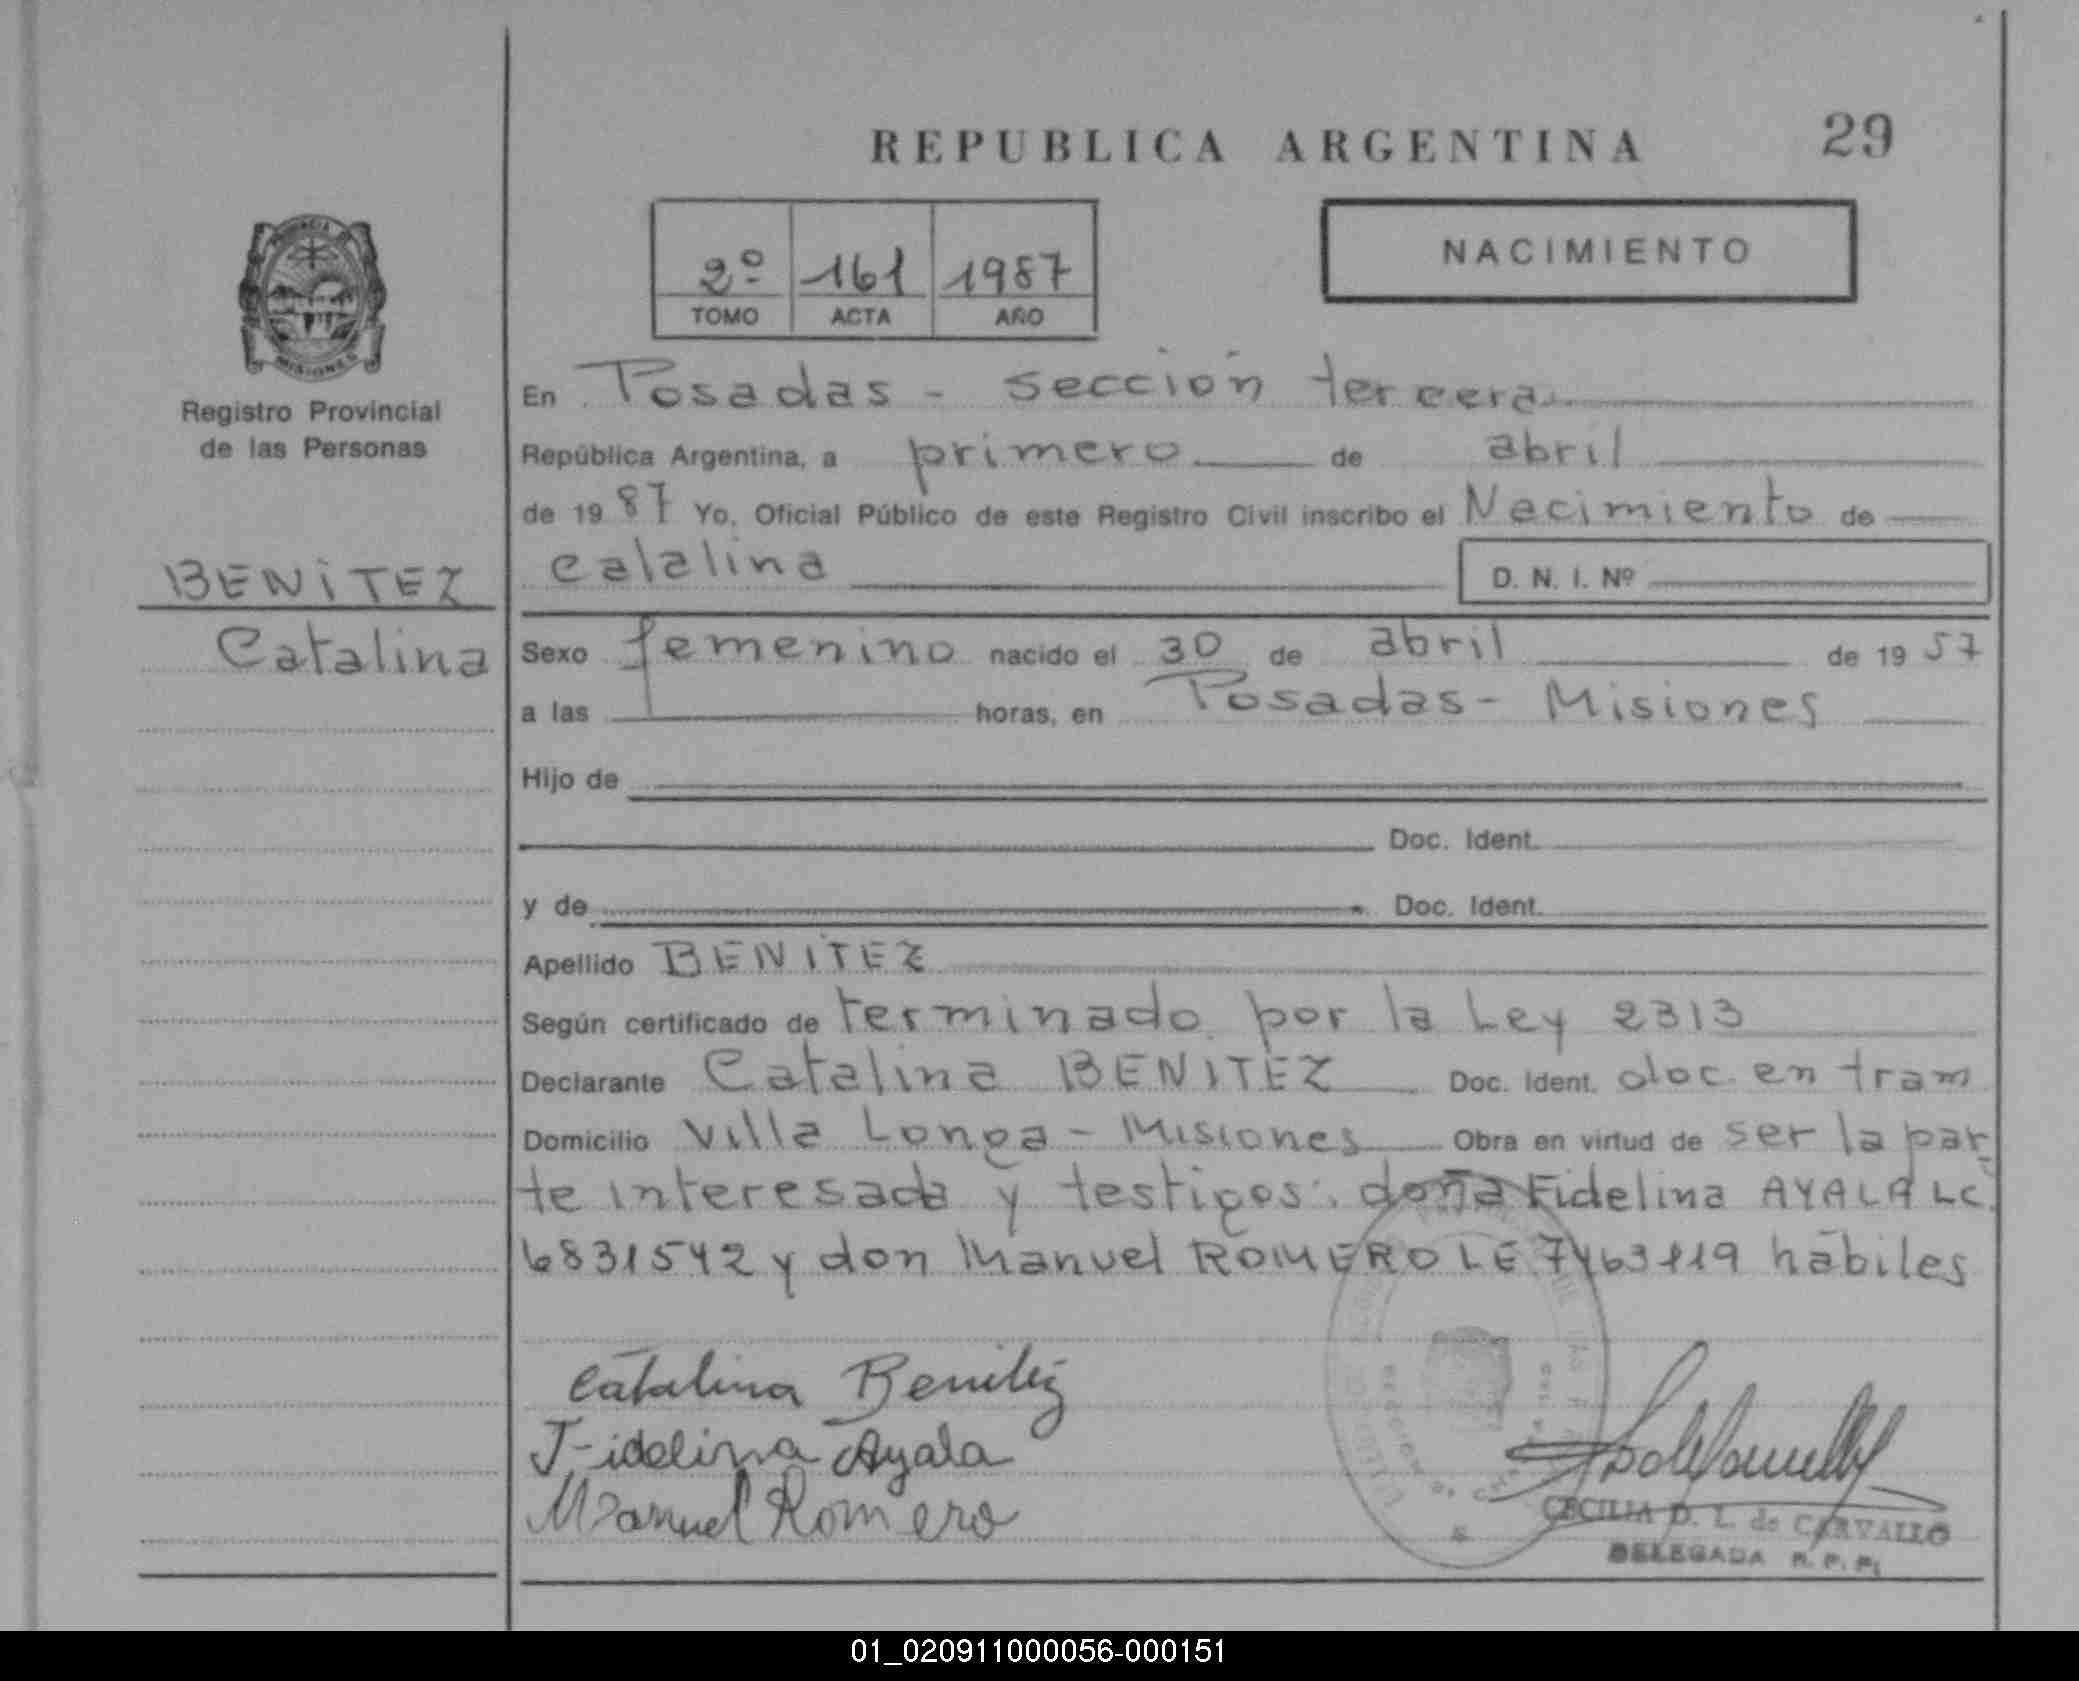 REPUBLICA ARGENTINA 29
2º 161 1987
TOMO ACTA AÑO
NACIMIENTO
PROVINCIA
MISIONES
Registro Provincial
de las Personas
BENITEZ
Catalina
En Posadas - sección tercera
República Argentina, a primero de abril
de 1987 Yo, Oficial Público de este Registro Civil inscribo el Nacimiento de
Catalina D. N. I. Nº
Sexo femenino nacido el 30 de abril de 1957
a las horas, en Posadas - Misiones
Hijo de
Doc. Ident.
y de Doc. Ident.
Apellido BENITEZ
Según certificado de terminado por la Ley 2313
Declarante Catalina BENITEZ Doc. Ident. doc. en tram
Domicilio Villa Longa - Misiones Obra en virtud de ser la par
te interesada y testigos: doña Fidelina AYALA LC.
6831542 y don Manuel ROMERO LE 7463119 hábiles
Catalina Benitez
Fidelina Ayala
Manuel Romero
CECILIA D. L. de CARVALLO
DELEGADA R. P. P.
01_020911000056-000151